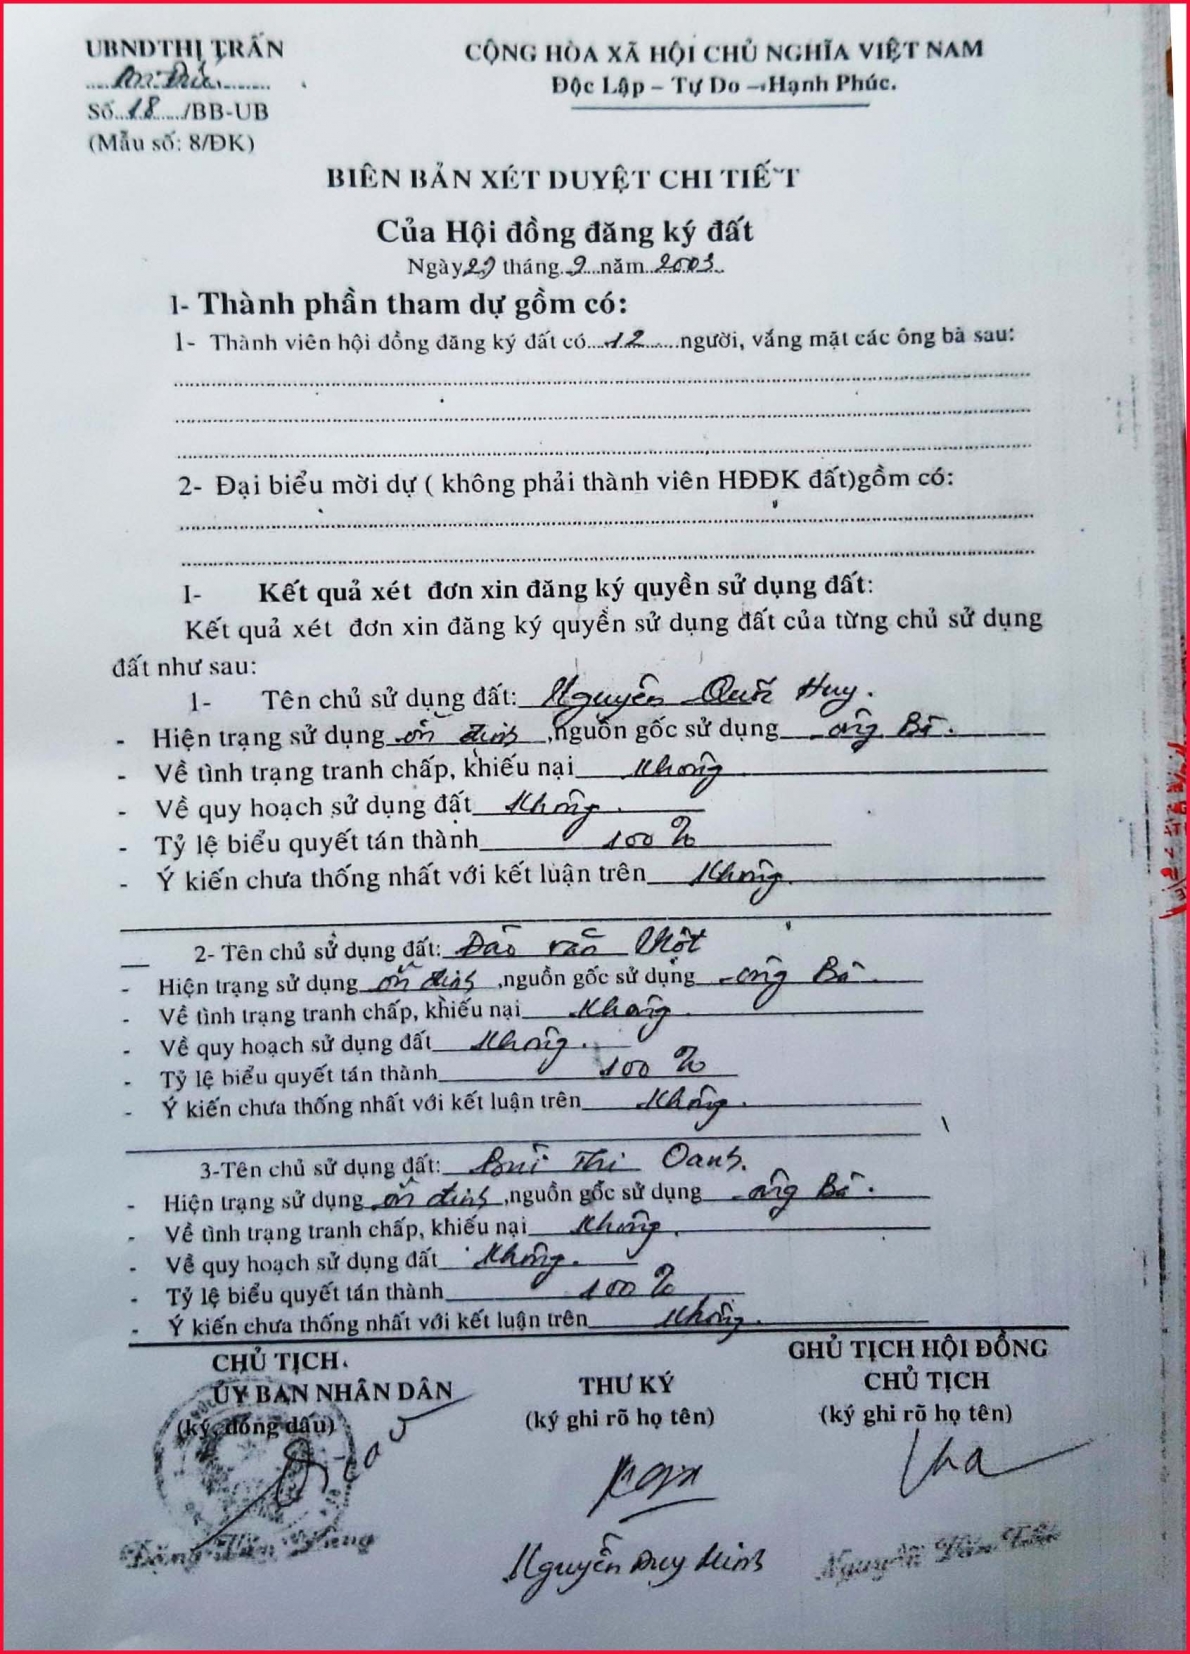 UBNDTHỊ TRẤN
CỘNG HÒA XÃ HỘI CHỦ NGHĨA VIỆT NAM
Độc Lập – Tự Do – Hạnh Phúc.
Số...18...../BB-UB
(Mẫu số: 8/ĐK)
BIÊN BẢN XÉT DUYỆT CHI TIẾT
Của Hội đồng đăng ký đất
Ngày 29 tháng..9...năm..2003..
I- Thành phần tham dự gồm có:
1- Thành viên hội đồng đăng ký đất có....12.......người, vắng mặt các ông bà sau:
2- Đại biểu mời dự ( không phải thành viên HĐĐK đất)gồm có:
I- Kết quả xét đơn xin đăng ký quyền sử dụng đất:
Kết quả xét đơn xin đăng ký quyền sử dụng đất của từng chủ sử dụng
đất như sau:
1- Tên chủ sử dụng đất: Nguyễn Quốc Huy.
- Hiện trạng sử dụng ổn định ,nguồn gốc sử dụng ông Bà.
- Về tình trạng tranh chấp, khiếu nại Không
- Về quy hoạch sử dụng đất Không.
- Tỷ lệ biểu quyết tán thành 100 %
- Ý kiến chưa thống nhất với kết luận trên Không.
2- Tên chủ sử dụng đất: Đào Văn Một
- Hiện trạng sử dụng ổn định ,nguồn gốc sử dụng ông Bà.
- Về tình trạng tranh chấp, khiếu nại Không.
- Về quy hoạch sử dụng đất Không.
- Tỷ lệ biểu quyết tán thành 100 %
- Ý kiến chưa thống nhất với kết luận trên Không.
3-Tên chủ sử dụng đất: Bùi Thị Oanh.
- Hiện trạng sử dụng ổn định ,nguồn gốc sử dụng ông Bà.
- Về tình trạng tranh chấp, khiếu nại Không.
- Về quy hoạch sử dụng đất Không.
- Tỷ lệ biểu quyết tán thành 100 %
- Ý kiến chưa thống nhất với kết luận trên Không.
CHỦ TỊCH.
ỦY BAN NHÂN DÂN
(ký đóng dấu)
THƯ KÝ
(ký ghi rõ họ tên)
GHỦ TỊCH HỘI ĐỒNG
CHỦ TỊCH
(ký ghi rõ họ tên)
Đặng Văn
Nguyễn Duy Minh
Nguyễn Văn